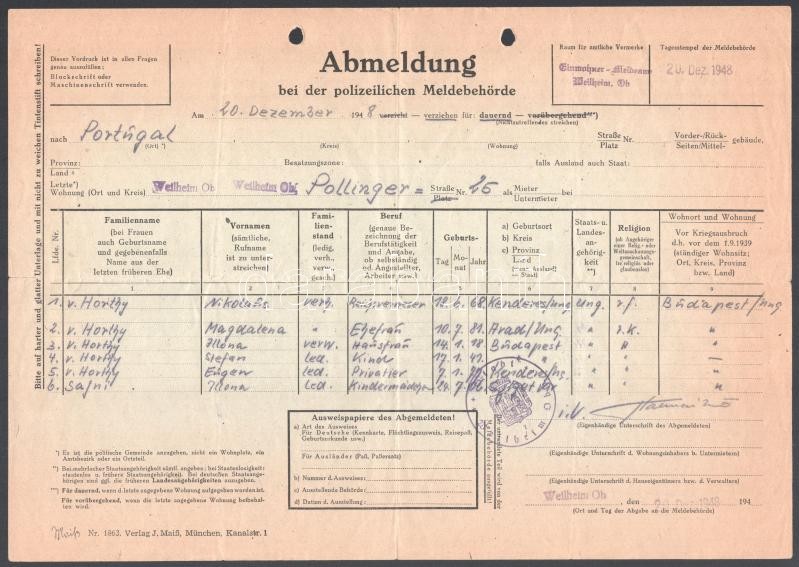 Dieser Vordruck ist in allen Fragen
genau auszufüllen:
Blockschrift oder
Maschinenschrift verwenden.
Abmeldung
bei der polizeilichen Meldebehörde
Raum für amtliche Vermerke
Einwohner-Meldeamt
Weilheim, Ob
Tagesstempel der Meldebehörde
20. Dez. 1948
Am 20. Dezember 1948 verzieht — verziehen für: dauernd — vorübergehend**)
(Nichtzutreffendes streichen)
nach Portugal Straße Nr. Vorder-/Rück- gebäude,
Platz Seiten/Mittel-
(Ort) *) (Kreis) (Wohnung)
Provinz: Besatzungszone: falls Ausland auch Staat:
Land
Letzte*)
Wohnung (Ort und Kreis) Weilheim Ob Weilheim Ob Pollinger = Straße Nr. 26 als Mieter bei
Platz Untermieter
Bitte auf harter und glatter Unterlage und mit nicht zu weichen Tintenstift schreiben!
Lfde. Nr.
Familienname
(bei Frauen
auch Geburtsname
und gegebenenfalls
Name aus der
letzten früheren Ehe)
Vornamen
(sämtliche,
Rufname
ist zu unter-
streichen)
Fami-
lien-
stand
(ledig,
verh.,
verw.,
gesch.)
Beruf
(genaue Be-
zeichnung der
Berufstätigkeit
und Angabe,
ob selbständig
od. Angestellter,
Arbeiter usw.)
Geburts-
Tag Mo-nat Jahr
a) Geburtsort
b) Kreis
c) Provinz
Land
Staat)
Staats- u.
Landes-
an-
gehörig-
keit
**)
Religion
(ob Angehöriger
einer Relig.- oder
Weltanschauungs-
gemeinschaft,
Wohnort und Wohnung
Vor Kriegsausbruch
d.h. vor dem 1.9.1939
(ständiger Wohnsitz;
Ort, Kreis, Provinz
bzw. Land)
1 2 3 4 5 6 7 8 9
1. v. Horthy Nikolaus verh. 18. 6. 68. Kenderes/Ung Ung. r.f. Budapest/Ung
2. v. Horthy Magdalena " Ehefrau 10. 7. 81. Arad/Ung " r.k. "
3. v. Horthy Ilona verw. Hausfrau 14. 1. 18 Budapest " " "
4. v. Horthy Stefan led. Kind 17. 1. 41. " " " —
5. v. Horthy Eugen led. Privatier Kenderes/Ung. " " "
6. Ilona led. Kindermädchen " " "
Ausweispapiere des Abgemeldeten!
a) Art des Ausweises
Für Deutsche (Kennkarte, Flüchtlingsausweis, Reisepaß,
Geburtsurkunde usw.)
Für Ausländer (Paß, Paßersatz)
b) Nummer d. Ausweises:
c) Ausstellende Behörde:
d) Datum d. Ausstellung:
Der umrandete Teil wird von der
Meldebehörde ausgefüllt!
*) Es ist die politische Gemeinde anzugeben, nicht ein Wohnplatz, ein
Amtsbezirk oder ein Ortsteil.
**) Bei mehrfacher Staatsangehörigkeit sämtl. angeben; bei Staatenlosigkeit:
staatenlos u. frühere Staatsangehörigkeit. Bei deutschen Staatsange-
hörigen sind ggf. die früheren Landesangehörigkeiten anzugeben.
**) Für dauernd, wenn d. letzte angegebene Wohnung aufgegeben worden ist.
Für vorübergehend, wenn die letzte angegebene Wohnung beibehal-
ten wird.
i.V.
(Eigenhändige Unterschrift des Abgemeldeten)
(Eigenhändige Unterschrift d. Wohnungsinhabers b. Untermietern)
(Eigenhändige Unterschrift d. Hauseigentümers bzw. d. Verwalters)
Weilheim Ob, den 20. Dez. 1948 194
(Ort und Tag der Abgabe an die Meldebehörde)
Maiß Nr. 1863. Verlag J. Maiß, München, Kanalstr. 1